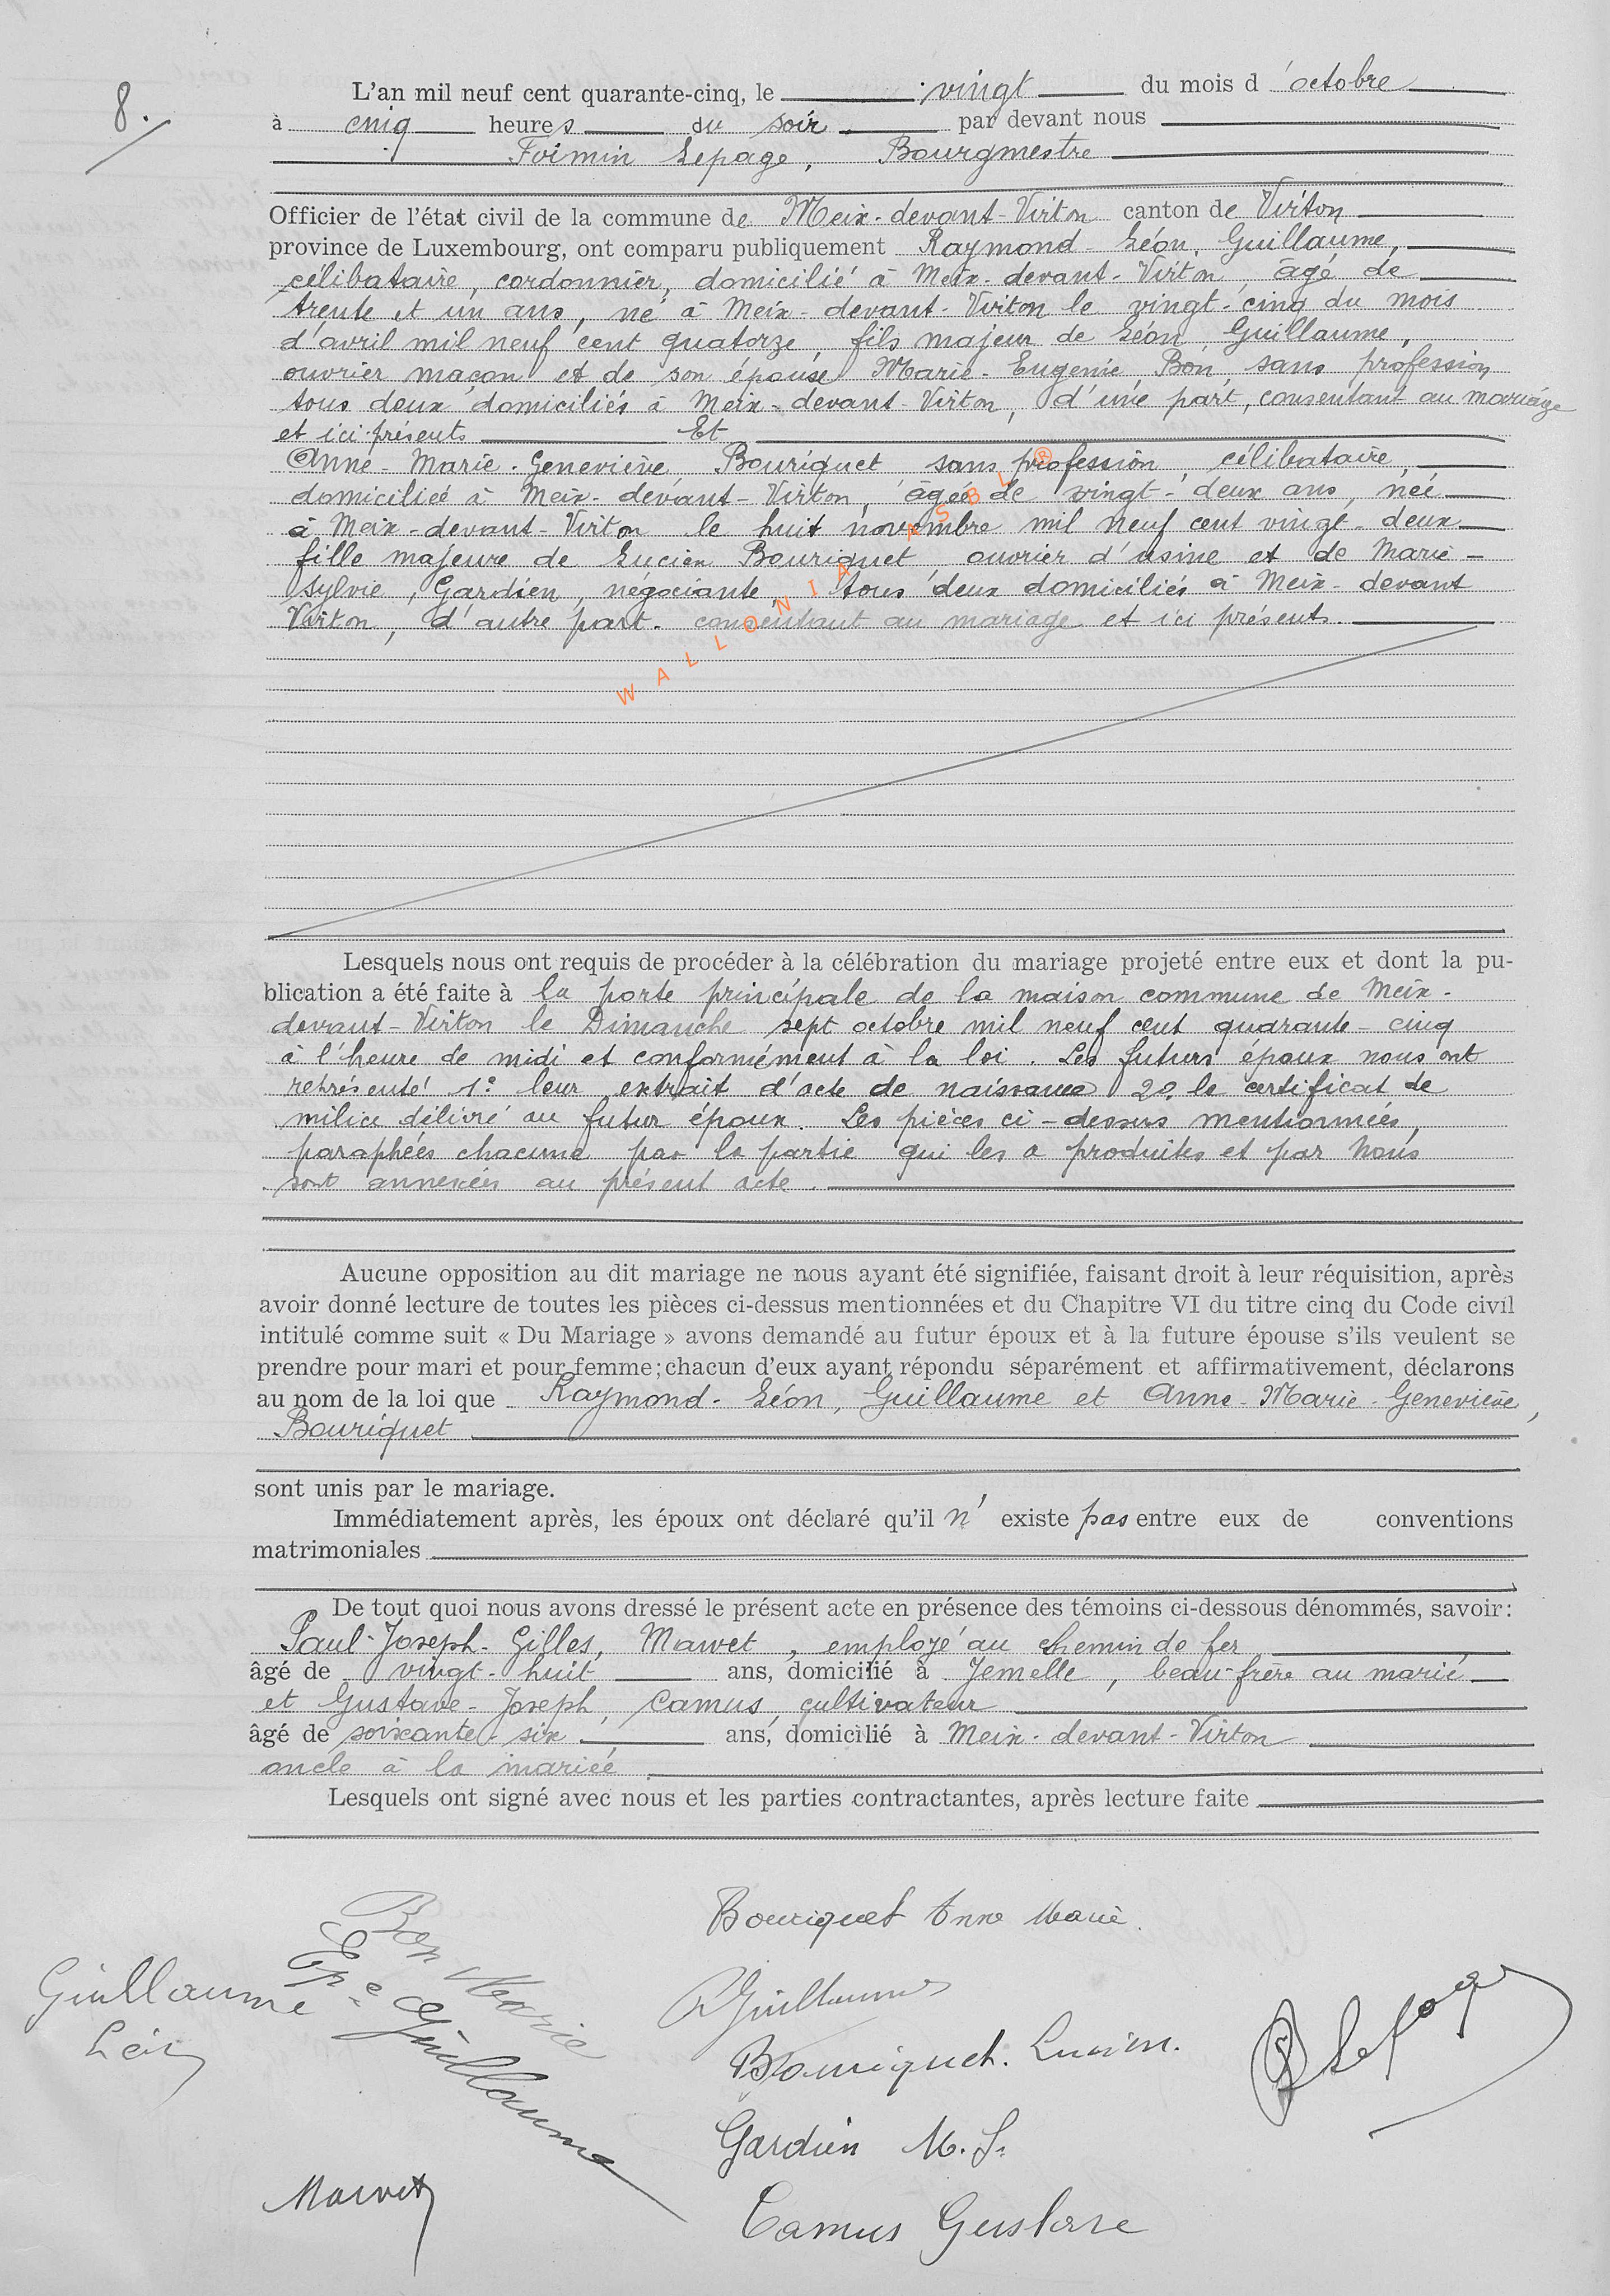 8.
L'an mil neuf cent quarante-cinq, le vingt du mois d'octobre
à cinq heures du soir par devant nous
Firmin Lepage, Bourgmestre
Officier de l'état civil de la commune de Meix-devant-Virton canton de Virton
province de Luxembourg, ont comparu publiquement Raymond-Léon, Guillaume,
célibataire, cordonnier, domicilié à Meix-devant-Virton, âgé de
trente et un ans, né à Meix-devant-Virton le vingt-cinq du mois
d'avril mil neuf cent quatorze, fils majeur de Léon Guillaume,
ouvrier maçon et de son épouse Marie-Eugénie, Bon, sans profession
tous deux domiciliés à Meix-devant-Virton, d'une part, consentant au mariage
et ici présents Et
Anne-Marie-Geneviève Bouriquet sans profession, célibataire,
domiciliée à Meix-devant-Virton, âgée de vingt-deux ans, née
à Meix-devant-Virton le huit novembre mil neuf cent vingt-deux
fille majeure de Lucien Bouriquet, ouvrier d'usine et de Marie-
Sylvie, Gardien, négociante, tous deux domiciliés à Meix-devant
Virton, d'autre part. consentant au mariage et ici présents.
WALLONIA ASBL ®
Lesquels nous ont requis de procéder à la célébration du mariage projeté entre eux et dont la pu-
blication a été faite à la porte principale de la maison commune de Meix-
devant-Virton le Dimanche sept octobre mil neuf cent quarante-cinq
à l'heure de midi et conformément à la loi. Les futurs époux nous ont
représenté 1° leur extrait d'acte de naissance 2° le certificat de
milice délivré au futur époux. Les pièces ci-dessus mentionnées,
paraphées chacune par la partie qui les a produites et par Nous
sont annexées au présent acte.
Aucune opposition au dit mariage ne nous ayant été signifiée, faisant droit à leur réquisition, après
avoir donné lecture de toutes les pièces ci-dessus mentionnées et du Chapitre VI du titre cinq du Code civil
intitulé comme suit « Du Mariage » avons demandé au futur époux et à la future épouse s'ils veulent se
prendre pour mari et pour femme; chacun d'eux ayant répondu séparément et affirmativement, déclarons
au nom de la loi que Raymond-Léon, Guillaume et Anne-Marie-Geneviève,
Bouriquet
sont unis par le mariage.
Immédiatement après, les époux ont déclaré qu'il n'existe pas entre eux de conventions
matrimoniales
De tout quoi nous avons dressé le présent acte en présence des témoins ci-dessous dénommés, savoir:
Paul-Joseph-Gilles, Mawet, employé au chemin de fer
âgé de vingt-huit ans, domicilié à Jemelle, beau-frère au marié
et Gustave-Joseph, Camus, cultivateur
âgé de soixante-six ans, domicilié à Meix-devant-Virton
oncle à la mariée.
Lesquels ont signé avec nous et les parties contractantes, après lecture faite
Bouriquet Anne Marie.
Bon Marie
Epe Guillaume
Guillaume
Léon
R Guillaume
Bouriquet. Lucien.
Lepage
Gardien M. S.
Mawet
Camus Gustave